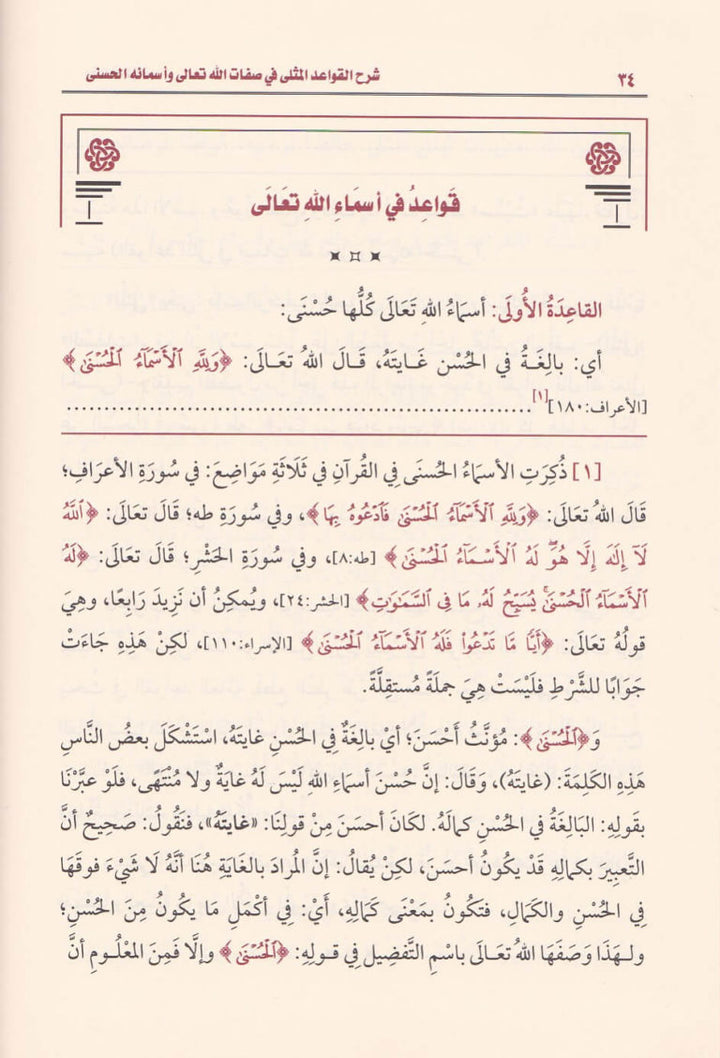 ٣٤
شرح القواعد المثلى في صفات الله تعالى وأسمائه الحسنى
قَواعِدُ في أسمَاءِ اللهِ تعَالَى
القاعِدَةُ الأُولَى: أسمَاءُ اللهِ تَعَالَى كُلُّها حُسْنَى:
أي: بالِغَةٌ في الحُسْنِ غَـايتَهُ، قَـالَ اللهُ تعَـالَى: ﴿وَلِلَّهِ ٱلْأَسْمَآءُ ٱلْحُسْنَىٰ﴾
[الأعراف:١٨٠][١]............................................................
[١] ذُكِرَتِ الأسْمَاءُ الحُسنَى فِي القُرآنِ فِي ثَلَاثَةِ مَوَاضِعَ: فِي سُورَةِ الأعرَافِ؛
قَالَ اللهُ تعَالَى: ﴿وَلِلَّهِ ٱلْأَسْمَآءُ ٱلْحُسْنَىٰ فَٱدْعُوهُ بِهَا﴾، وفي سُورَةِ طه؛ قَالَ تعَالَى: ﴿ٱللَّهُ
لَآ إِلَٰهَ إِلَّا هُوَ ۖ لَهُ ٱلْأَسْمَآءُ ٱلْحُسْنَىٰ﴾ [طه:٨]، وفي سُورَةِ الحَشْرِ؛ قَالَ تعَالَى: ﴿لَهُ
ٱلْأَسْمَآءُ ٱلْحُسْنَىٰ ۚ يُسَبِّحُ لَهُۥ مَا فِي ٱلسَّمَٰوَٰتِ﴾ [الحشر:٢٤]، ويُمكِنُ أن نَزِيدَ رَابِعًا، وهِيَ
قولُهُ تعَالَى: ﴿أَيًّا مَّا تَدْعُوا۟ فَلَهُ ٱلْأَسْمَآءُ ٱلْحُسْنَىٰ﴾ [الإسراء:١١٠]، لكِنْ هَذِهِ جَاءَتْ
جَوَابًا للشَّرْطِ فلَيْسَتْ هِيَ جملَةً مُستقِلَّةً.
وَ﴿ٱلْحُسْنَىٰ﴾: مُؤنَّثُ أَحْسَنَ؛ أيْ بالِغَةٌ فِي الحُسْنِ غايتَهُ، اسْتَشْكَلَ بعضُ النَّاسِ
هَذِهِ الكَلِمَةَ: (غايتَهُ)، وَقَالَ: إنَّ حُسْنَ أسمَاءِ اللهِ لَيْسَ لَهُ غايَةٌ ولا مُنْتَهًى، فلَوْ عبَّرْنَا
بقولِهِ: البَالِغَةُ في الحُسْنِ كمالَهُ. لكَانَ أحسَنَ مِنْ قولِنَا: «غايتَهُ»، فنَقُولُ: صَحِيحٌ أنَّ
التَّعبِيرَ بكمالِهِ قَدْ يكُونُ أحسَنَ، لكِنْ يُقالُ: إنَّ المُرادَ بالغَايَةِ هُنَا أنَّهُ لَا شَيْءَ فوقَهَا
فِي الحُسْنِ والكَمَالِ، فتَكُونُ بمَعْنَى كَمَالِهِ، أيْ: فِي أكْمَلِ مَا يكُونُ مِنَ الحُسْنِ؛
ولـهَذَا وَصَفَهَا اللهُ تعَـالَى باسْمِ التَّفضِيلِ فِي قـولِهِ: ﴿ٱلْحُسْنَىٰ﴾ وإلَّا فَمِنَ المَعْلُـومِ أنَّ